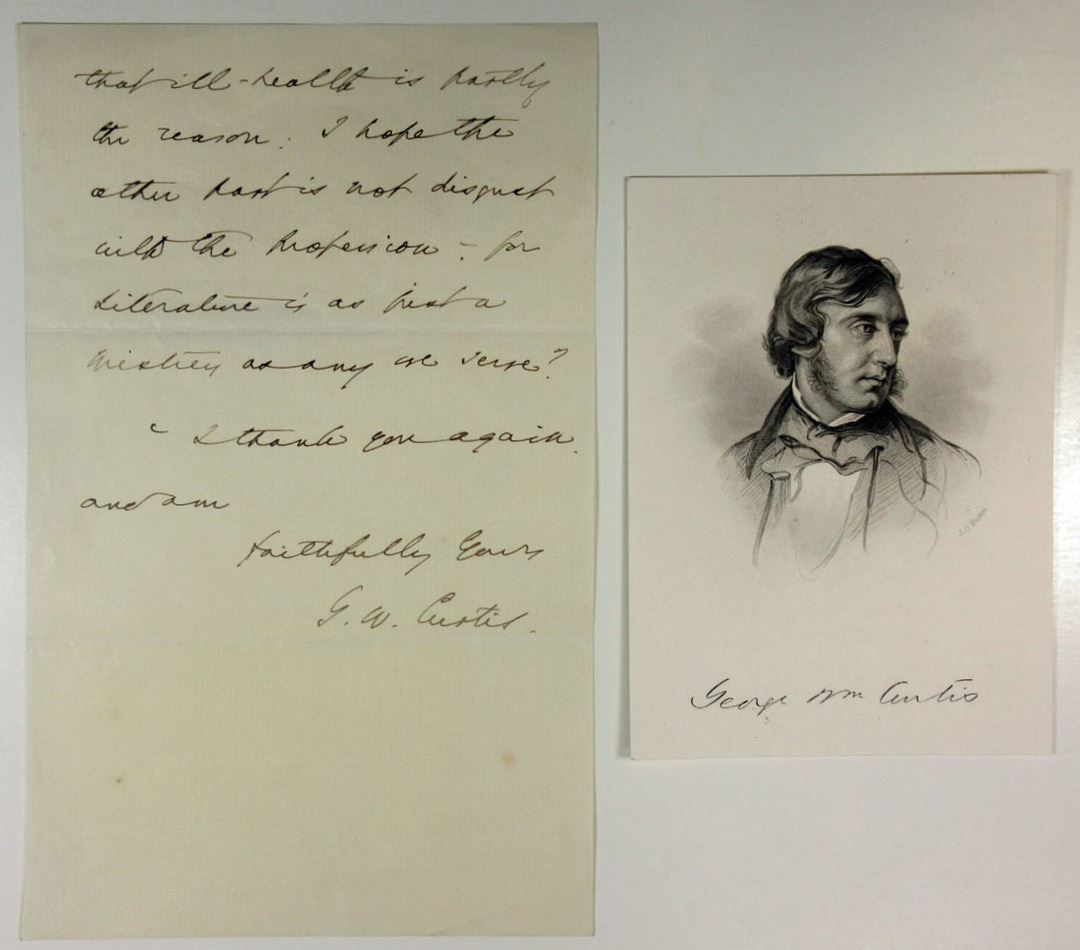 that ill-health is partly
the reason. I hope the
other part is not disgust
with the profession – for
Literature is as just a
as any we serve?
I thank you again.
and am
Faithfully Yours
G. W. Curtis.
George Wm Curtis